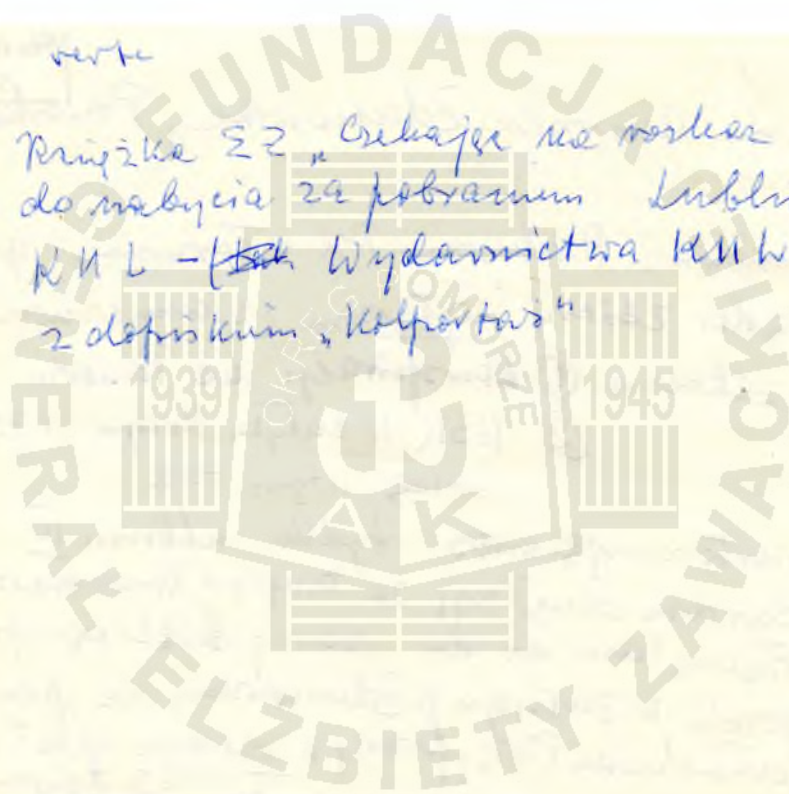 verte
Książka EZ „Czekając na rozkaz
do nabycia za pobraniem Lublin
KUL - Wydawnictwa KUL
z dopiskiem „Kolportaż"
FUNDACJA GENERAŁ ELŻBIETY ZAWACKIEJ
OKRĘG POMORZE
1939 1945
AK